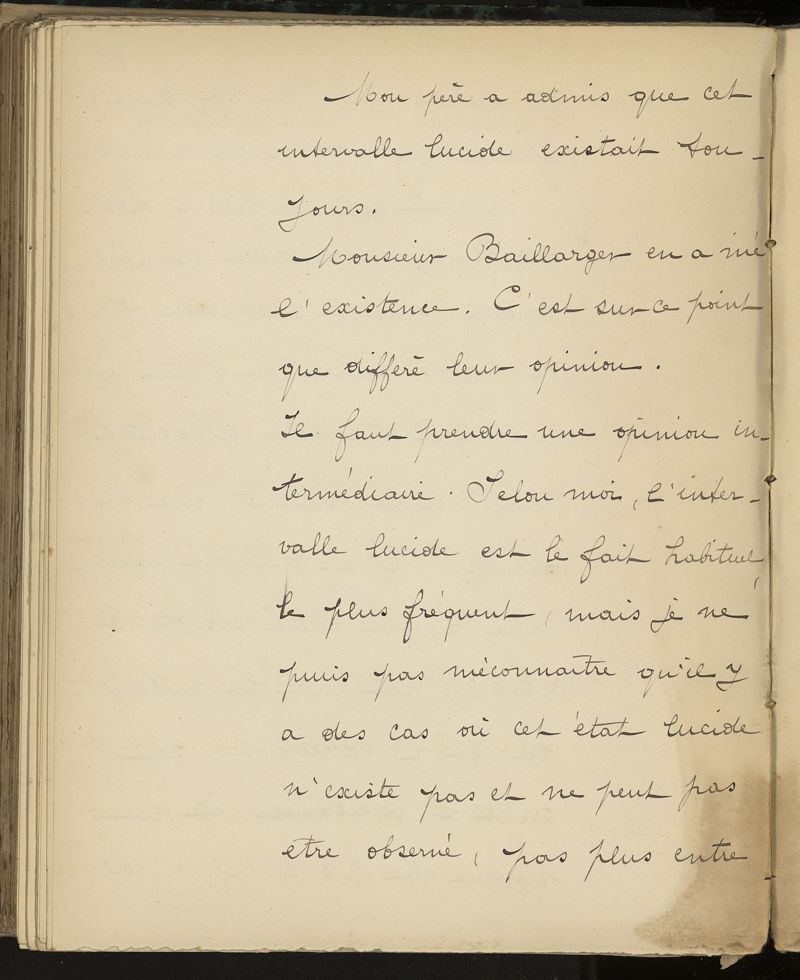 Mon père a admis que cet
intervalle lucide existait tou-
jours.
Monsieur Baillarger en a nié
l'existence. C'est sur ce point
que differe leur opinion.
Il faut prendre une opinion in-
termédiaire. Selon moi, l'inter-
valle lucide est le fait habituel,
le plus fréquent, mais je ne
puis pas méconnaitre qu'il y
a des cas où cet état lucide
n'existe pas et ne peut pas
etre observé, pas plus entre